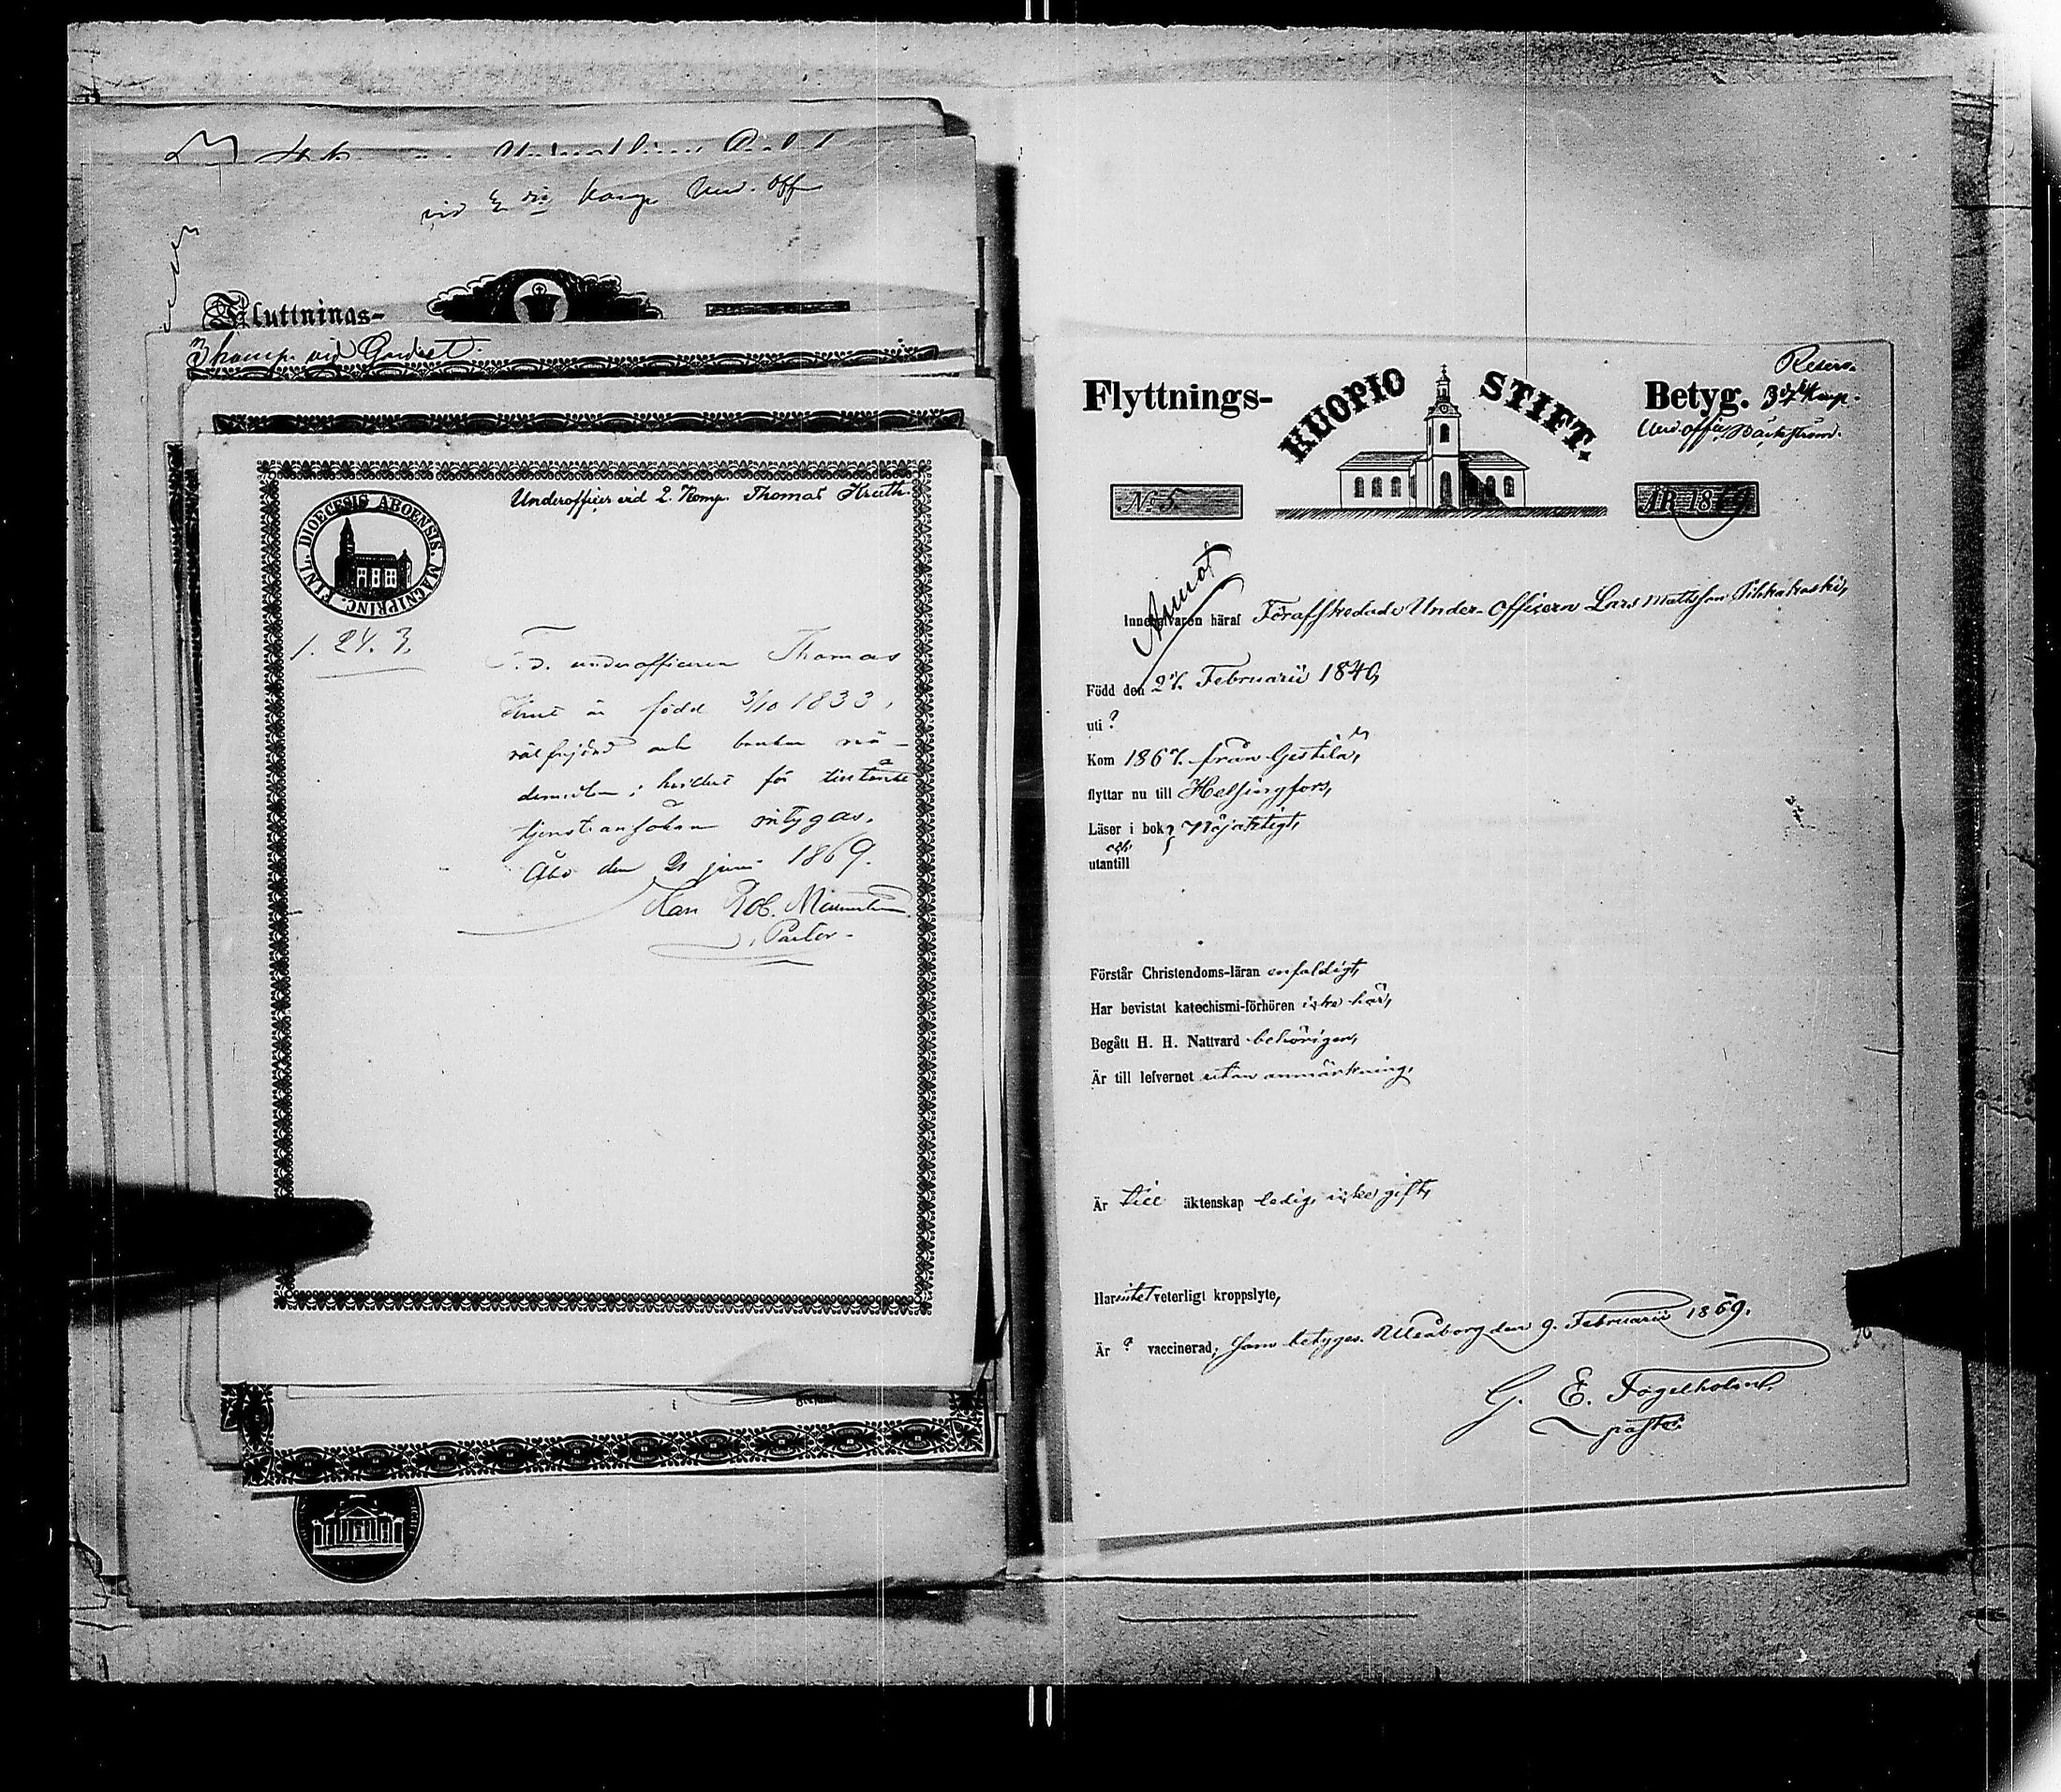 vid Komp. Und. off
Fluttnings-
3 komp. vid Gardet.
Underofficer vid 2 Komp. Thomas Kruth.
DIOECESIS ABOENSIS. MAGNI PRINC. FINL.
1. 24. 3.
F. d. underofficeren Thomas
Krut är född 3/10 1833,
välfrejdad och brukar nå-
demedlen; hvilket för
tjenstansökan intygas.
Åbo den 21 juni 1869.
Karl Rob.
Pastor.
Flyttnings-
KUOPIO STIFT.
Betyg.
Reserv.
3dje Komp.
Und.offic. Bäckström.
No 5.
ÅR 1869
Annot
Innehafvaren häraf Förafskedade Under-officern Lars Mathsson Pihkakoski,
Född den 27. Februarii 1840,
uti ?
Kom 1867. från Gestila,
flyttar nu till Helsingfors,
Läser i bok Nöjaktigt,
och
utantill
Förstår Christendoms-läran enfaldigt,
Har bevistat katechismi-förhören icke här,
Begått H. H. Nattvard behörigen,
Är till lefvernet utan anmärkning,
Är till äktenskap ledig, icke gift,
Har intet veterligt kroppslyte,
Är ? vaccinerad; Som betyges. Uleåborg den 9. Februarii 1869.
G. E. Fogelholm.
pastor